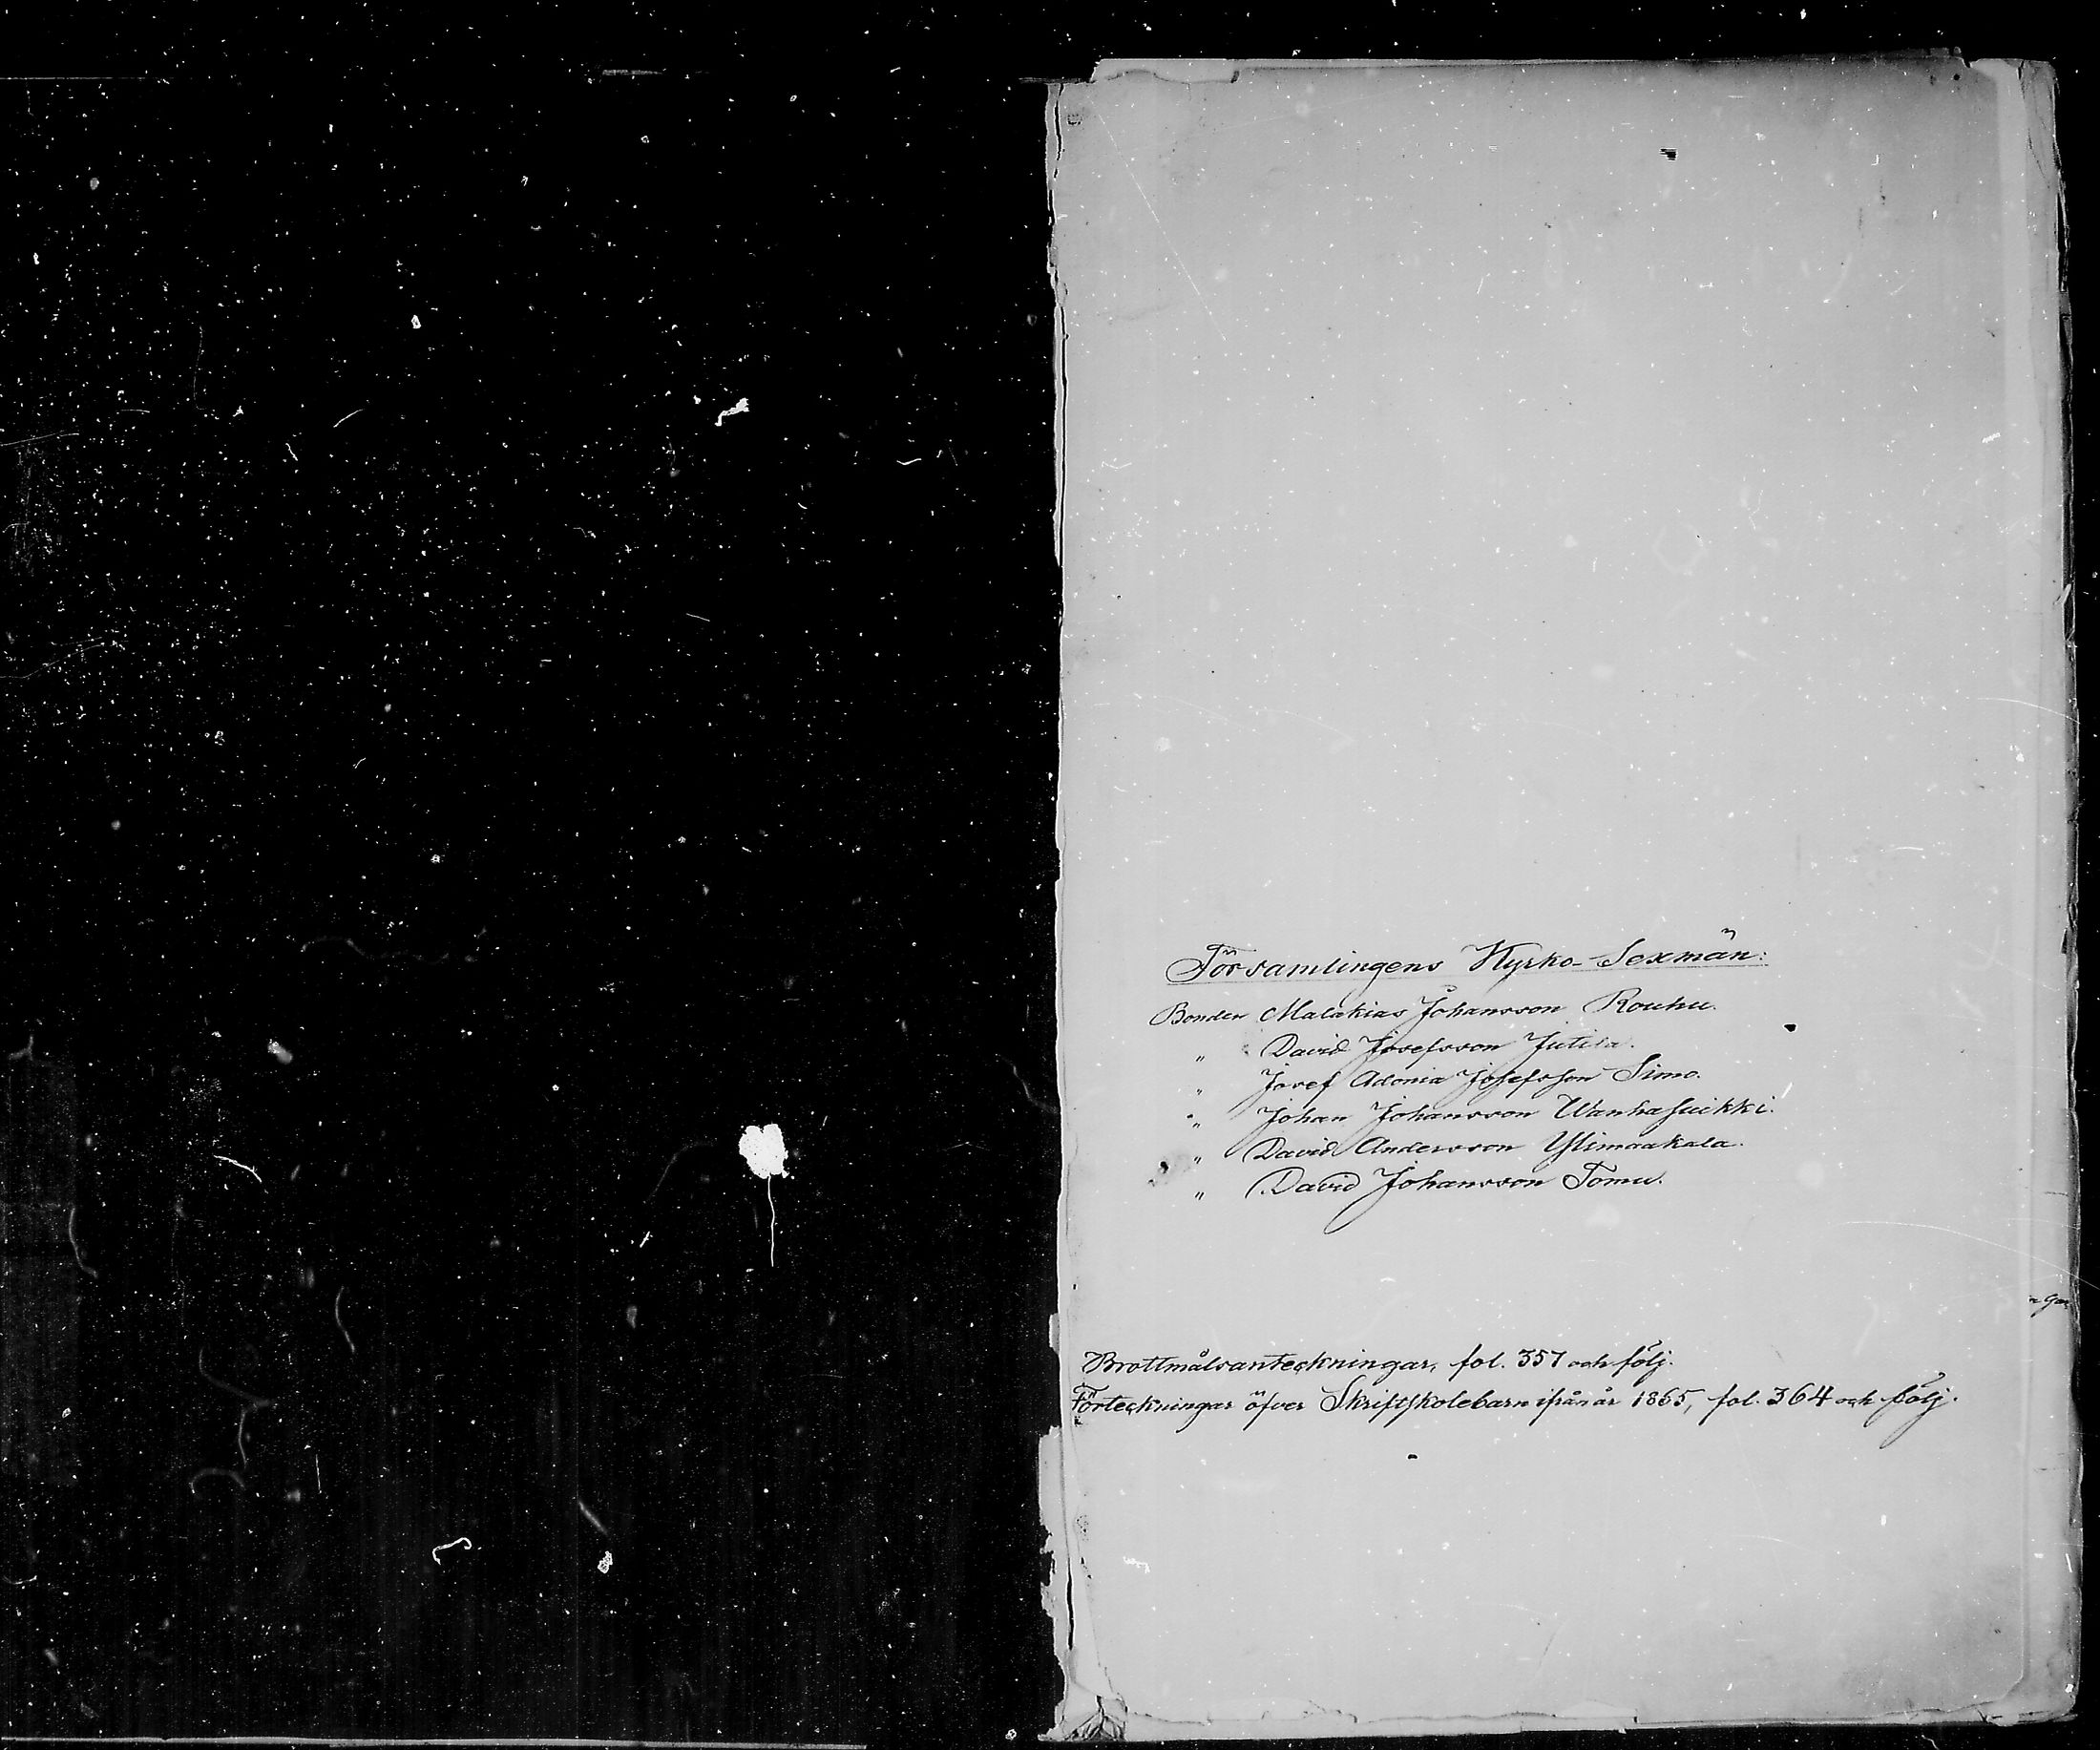 Församlingens Kyrko-Sexmän:
Bonden Malakias Johansson Rouhu.
„ David Josefsson Jutila.
„ Josef Adonia Josefsson Simo.
„ Johan Johansson Wanhasuikki.
„ David Andersson Ylimaakala.
„ David Johansson Tomu.
Brottmålsanteckningar, fol. 357 och följ.
Förteckningar öfver Skriftskolebarn ifrån år 1865, fol. 364 och följ.